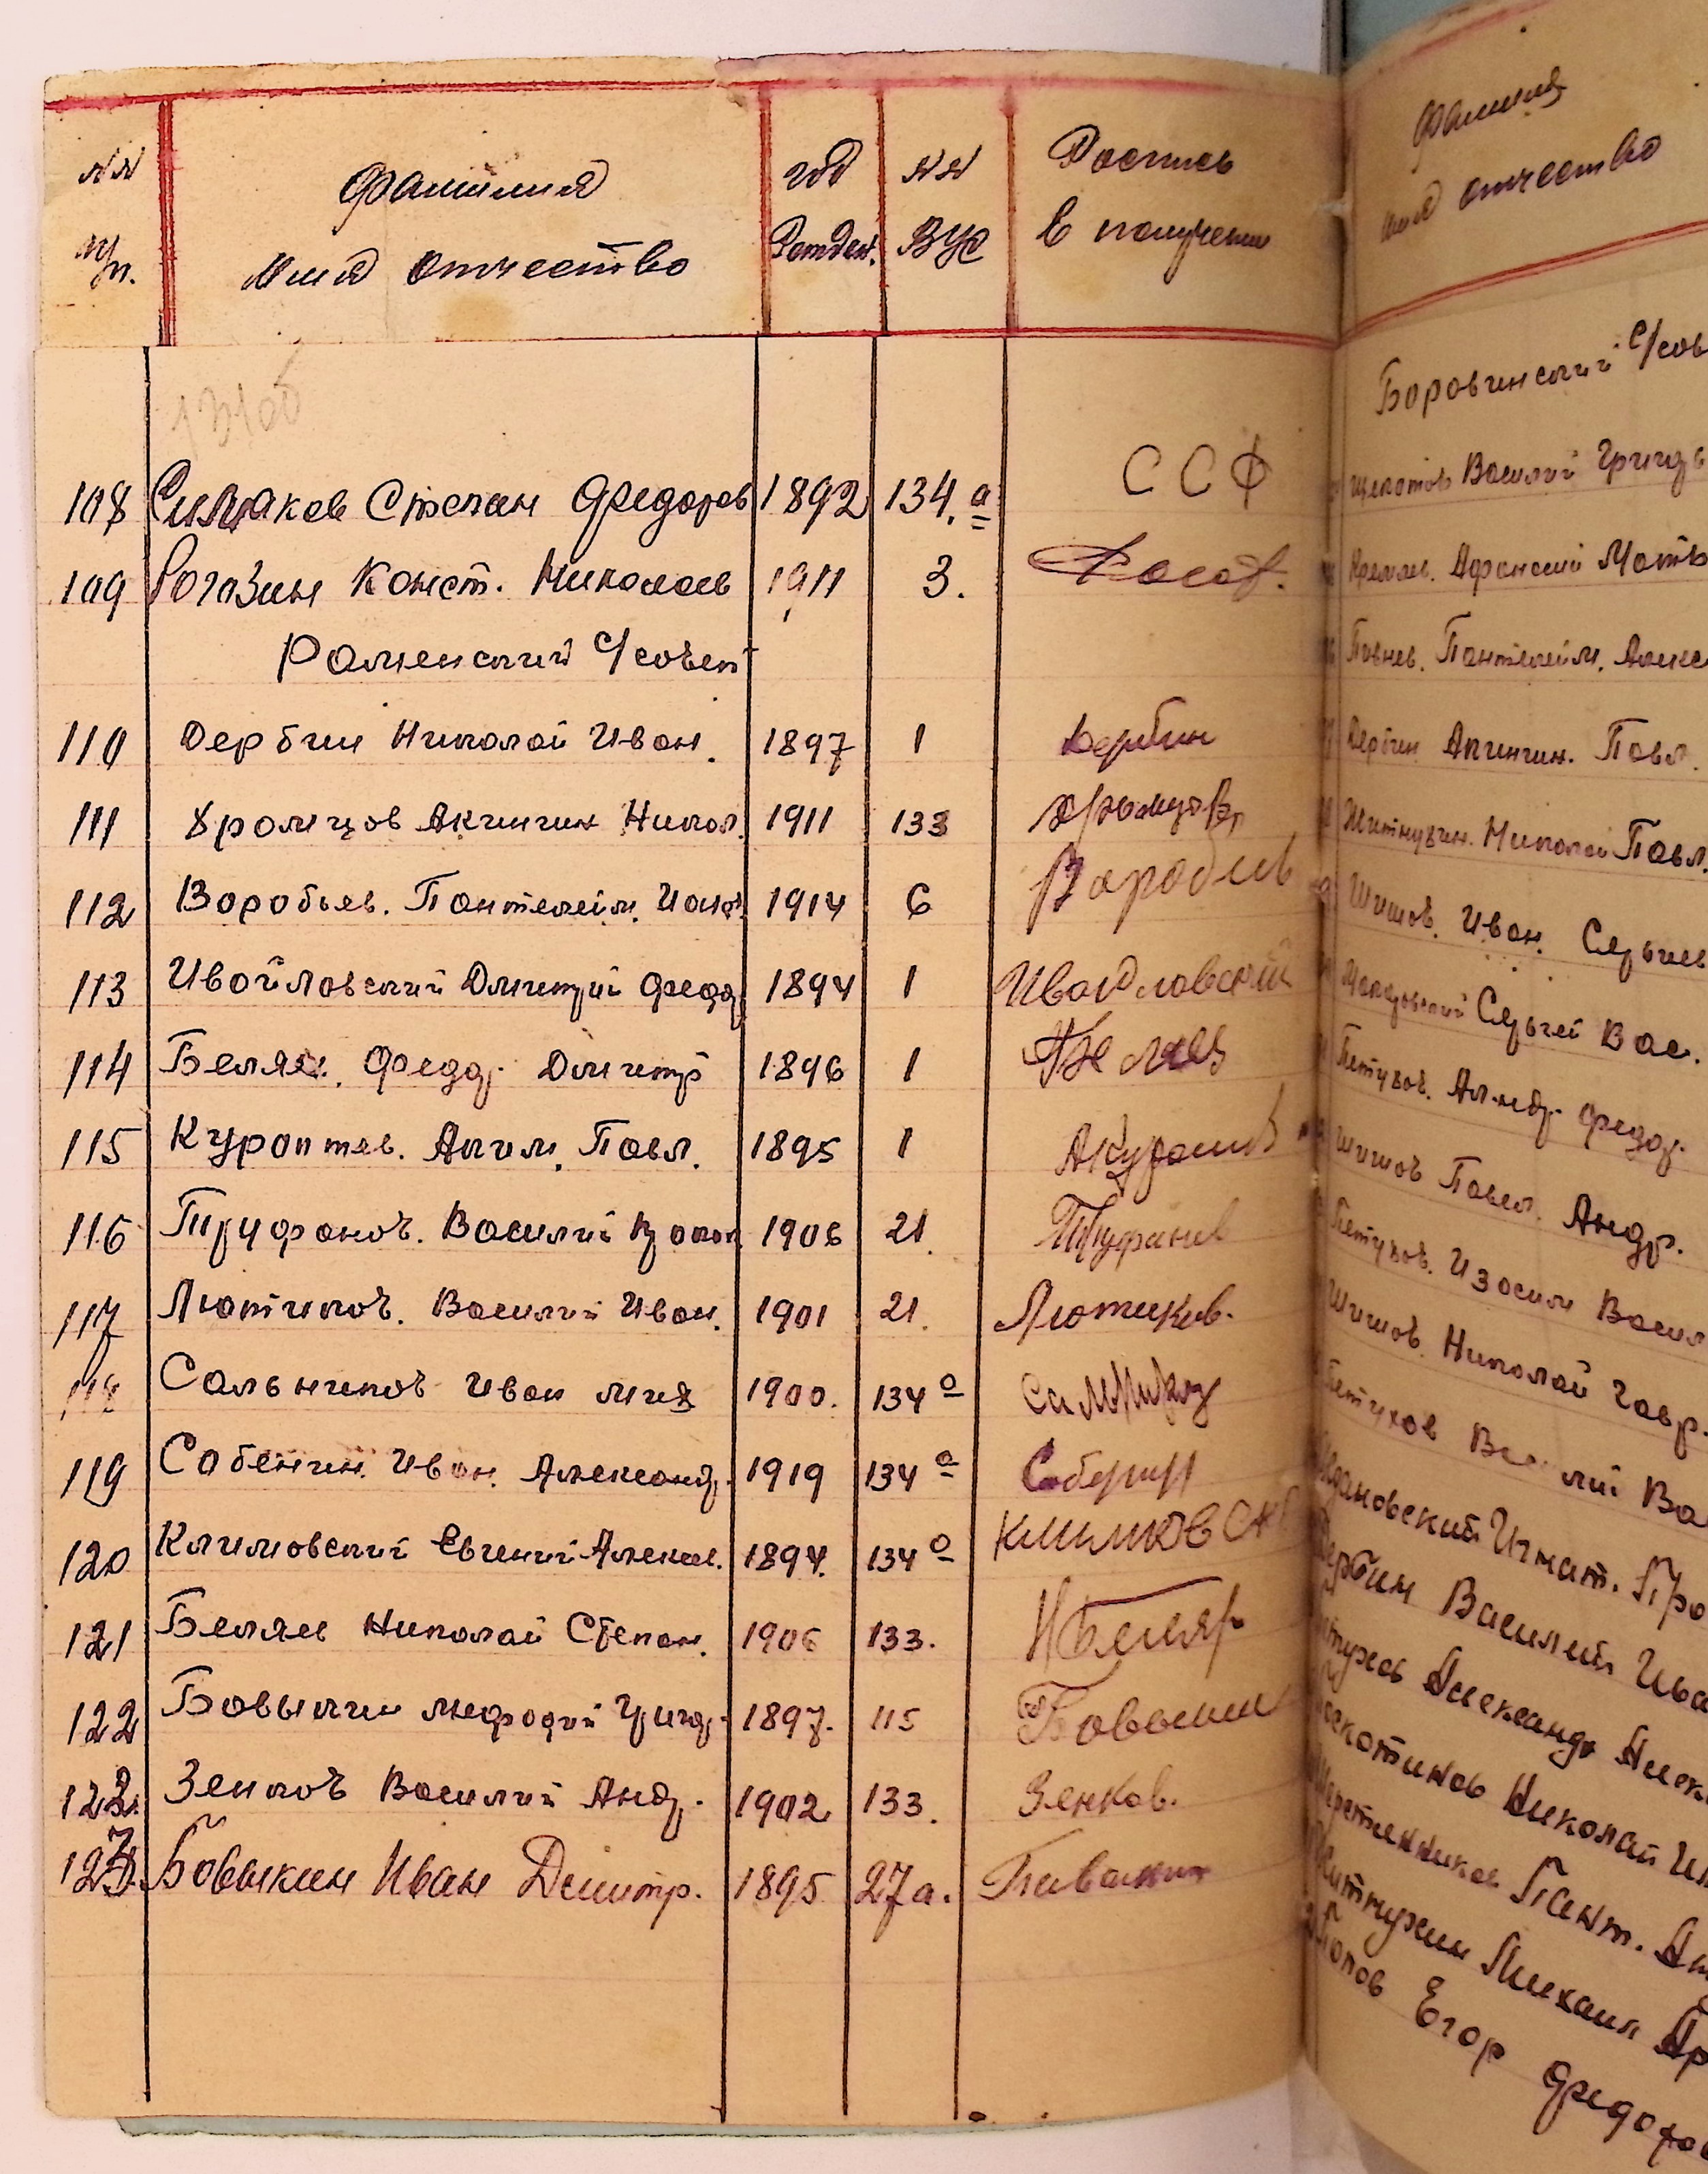 №№ п/п. Фамилия Имя Отчество год Рожден. №№ ВУС Роспись в получении
108 Симаков Степан Федоров 1892 134.а ССФ
109 Рогазин Конст. Николаев 1911 3.
Раменский С/совет
110 Дербин Николай Иван. 1897 1 Дербин
111 Хромцов Акиндин Никол. 1911 133 Хромцов
112 Воробьев. Пантелейм. 1914 6 Воробьев
113 Ивойловский Дмитрий Федор 1894 1 Ивойловский
114 Беляев. Федор. Дмитр 1896 1 Беляев
115 Куроптев. Аким. Павл. 1895 1
116 Труфанов. Василий 1906 21. Труфанов
117 Лютиков. Василий Иван. 1901 21. Лютиков.
118 Сальников Иван Мих 1900. 134а
119 Сабенин. Иван. Александ. 1919 134а
120 Климовский Евгений Алексан. 1894. 134а Климовск
121 Беляев Николай Степан. 1906 133.
122 Бовыкин Мефодий Григор. 1897. 115 Бовыкин
123. Зенков Василий Анд. 1902 133. Зенков.
124. Бовыкин Иван Дмитр. 1895 27а.
Фамилия
имя отчество
Боровинский С/сов
Василий Григорь
Афанасий Матв
Пантелейм. Алекс
Дербин Павл.
Житнухин. Николай Павл.
Шишов. Иван. Сергеев
Сергей Вас.
Петухов. Ал-нд. Федор.
Шишов Павел. Андр.
Петухов. Изосим Васил
Шишов. Николай Гавр.
Петухов Ва
Игнат. Про
Дербин Василий Ива
Александр Алекс
Николай
Пант.
Житнухин Михаил
Попов Егор Федоров